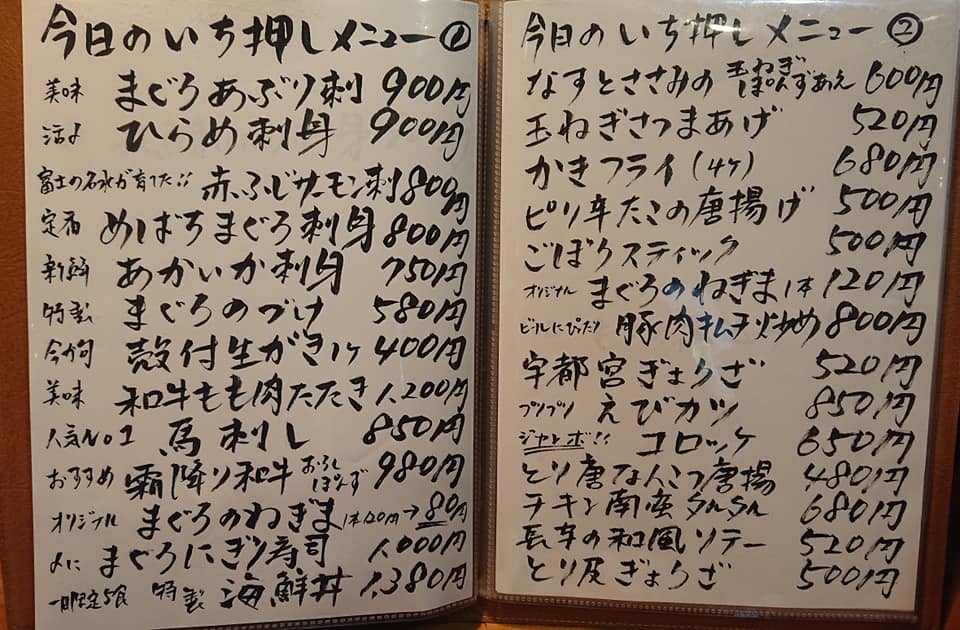 今日のいち押しメニュー①
美味 まぐろあぶり刺 900円
活〆 ひらめ刺身 900円
富士の名水が育てた!! 赤ふじサーモン刺 800円
定番 めばちまぐろ刺身 800円
新鮮 あかいか刺身 750円
特製 まぐろのづけ 580円
今が旬 殻付生がき1ヶ 400円
美味 和牛もも肉たたき 1,200円
人気No1 馬刺し 850円
おすすめ 霜降り和牛おろしぽんず 980円
オリジナル まぐろのねぎま 1本120円→80円
まぐろにぎり寿司 1,000円
一日限定5食 特製 海鮮丼 1,380円
今日のいち押しメニュー②
なすとささみの玉ねぎぽんずあえ 600円
玉ねぎさつまあげ 520円
かきフライ(4ヶ) 680円
ピリ辛たこの唐揚げ 500円
ごぼうスティック 500円
オリジナル まぐろのねぎま1本 120円
ビールにぴったり 豚肉キムチ炒め 800円
宇都宮ぎょうざ 520円
プリプリ えびカツ 850円
ジャンボ!! コロッケ 650円
とり唐なんこつ唐揚 480円
チキン南蛮タルタル 680円
長芋の和風ソテー 520円
とり皮ぎょうざ 500円